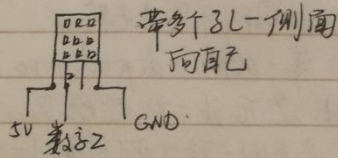 带多个孔一侧面
向自己
5V 数字2 GND